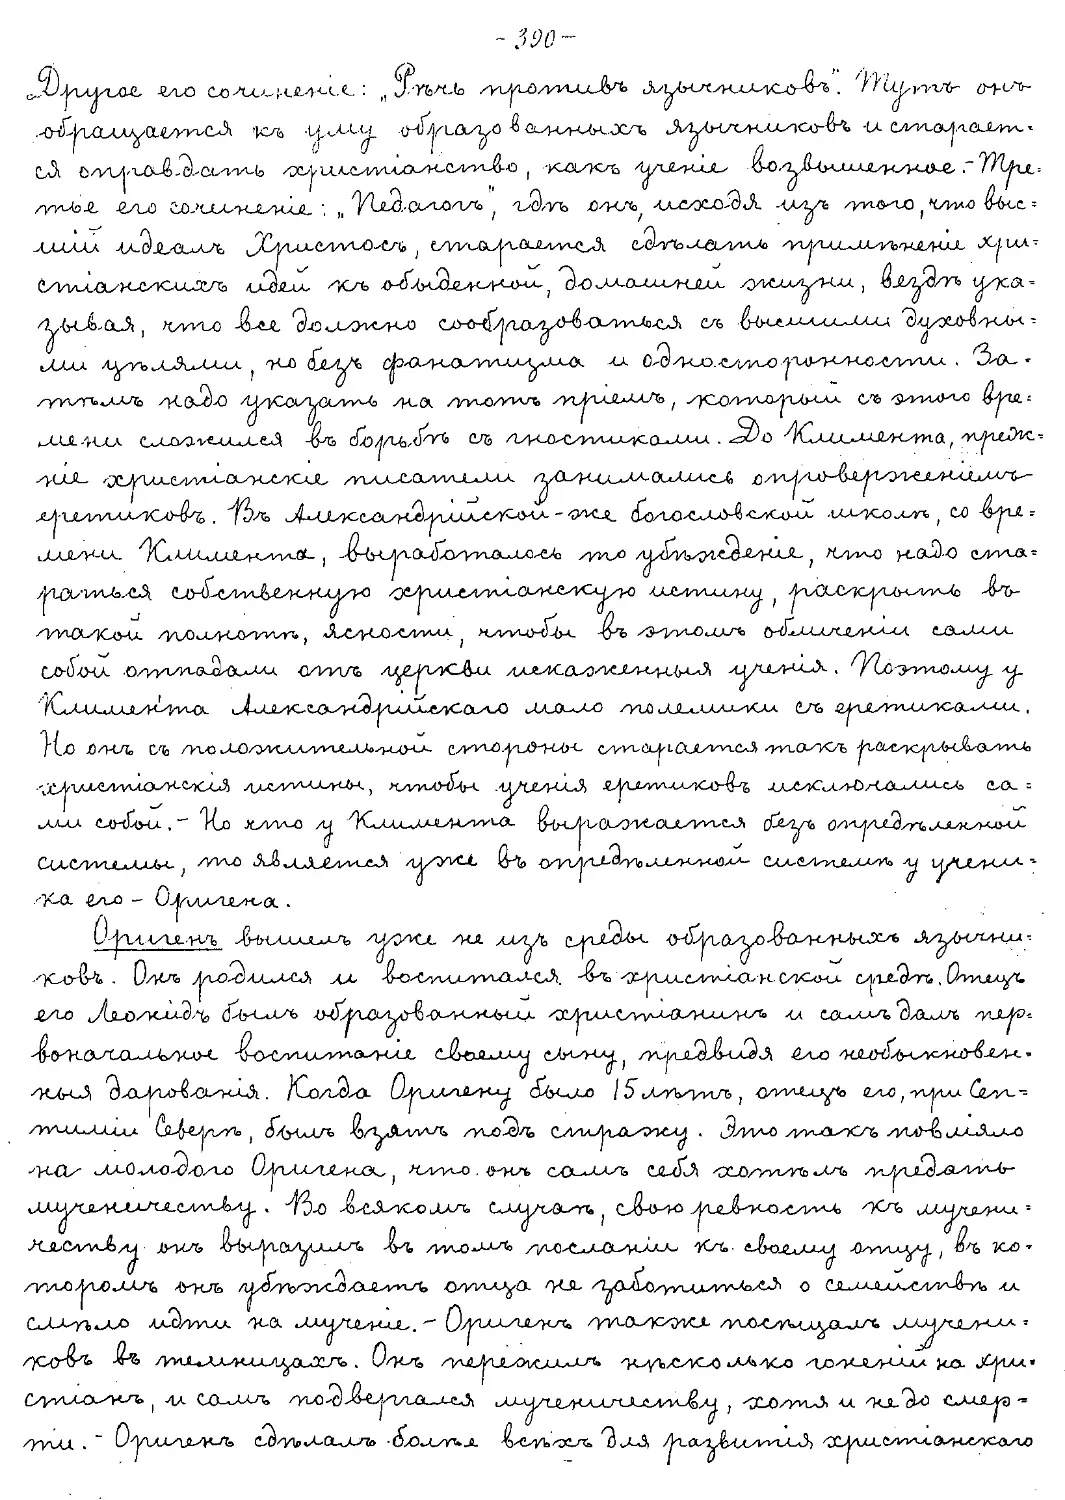 - 390 -
Другое его сочиненіе: „Рѣчь противъ язычниковъ". Тутъ онъ
обращается къ уму образованныхъ язычниковъ и старает=
ся оправдать христіанство, какъ ученіе возвышенное.- Тре=
тье его сочиненіе: „Педагогъ", гдѣ онъ, исходя изъ того, что выс=
шій идеалъ Христосъ, старается сдѣлать примѣненіе хри=
стіанскихъ идей къ обыденной, домашней жизни, вездѣ ука=
зывая, что все должно сообразоваться съ высшими духовны=
ми цѣлями, но безъ фанатизма и односторонности. За=
тѣмъ надо указать на тотъ пріемъ, который съ этого вре=
мени сложился въ борьбѣ съ гностиками. До Климента, преж=
ніе христіанскіе писатели занимались опроверженіемъ
еретиковъ. Въ Александрійской-же богословской школѣ, со вре=
мени Климента, выработалось то убѣжденіе, что надо ста=
раться собственную христіанскую истину, раскрыть въ
такой полнотѣ, ясности, чтобы въ этомъ обличеніи сами
собой отпадали отъ церкви искаженныя ученія. Поэтому у
Климента Александрійскаго мало полемики съ еретиками.
Но онъ съ положительной стороны старается такъ раскрывать
христіанскія истины, чтобы ученія еретиковъ исключались са=
ми собой.- Но что у Климента выражается безъ опредѣленной
системы, то является уже въ опредѣленной системѣ у учени=
ка его - Оригена.
Оригенъ вышелъ уже не изъ среды образованныхъ язычни=
ковъ. Онъ родился и воспитался въ христіанской средѣ. Отецъ
его Леонидъ былъ образованный христіанинъ и самъ далъ пер=
воначальное воспитаніе своему сыну, предвидя его необыкновен=
ныя дарованія. Когда Оригену было 15 лѣтъ, отецъ его, при Сеп=
тиміи Северѣ, былъ взятъ подъ стражу. Это такъ повліяло
на молодого Оригена, что онъ самъ себя хотѣлъ предать
мученичеству. Во всякомъ случаѣ, свою ревность къ мучени=
честву онъ выразилъ въ томъ посланіи къ своему отцу, въ ко=
торомъ онъ убѣждаетъ отца не заботиться о семействѣ и
смѣло идти на мученіе.- Оригенъ также посѣщалъ мучени=
ковъ въ темницахъ. Онъ пережилъ нѣсколько гоненій на хри=
стіанъ, и самъ подвергался мученичеству, хотя и не до смер=
ти.- Оригенъ сдѣлалъ болѣе всѣхъ для развитія христіанскаго